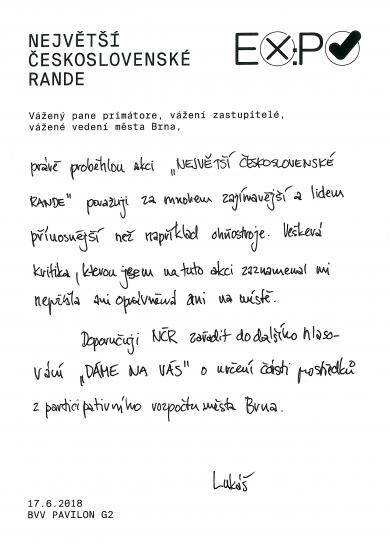 NEJVĚTŠÍ
ČESKOSLOVENSKÉ
RANDE
EXPO
Vážený pane primátore, vážení zastupitelé,
vážené vedení města Brna,
právě proběhlou akci „NEJVĚTŠÍ ČESKOSLOVENSKÉ
RANDE" považuji za mnohem zajímavější a lidem
přínosnější než například ohňostroje. Veškerá
kritika, kterou jsem na tuto akci zaznamenal mi
nepřišla ani oprávněná ani na místě.
Doporučuji NČR zařadit do dalšího hlaso-
vání „DÁME NA VÁS" o určení části prostředků
z participativního rozpočtu města Brna.
Lukáš
17.6.2018
BVV PAVILON G2